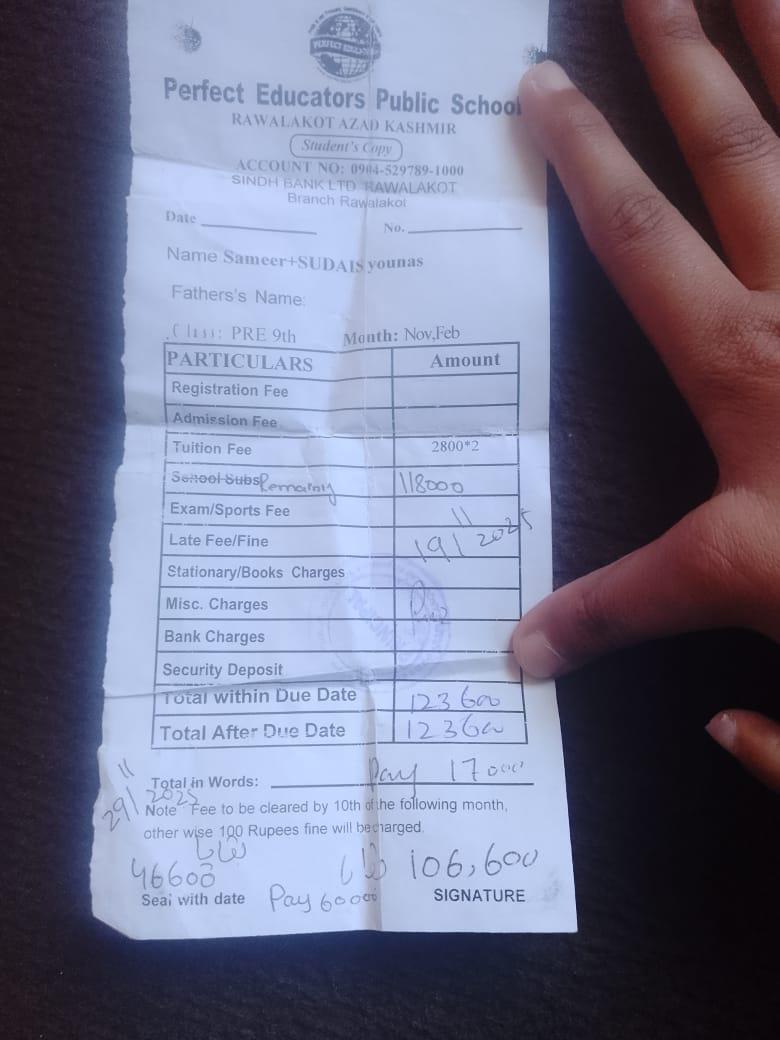 PERFECT EDUCATORS
Perfect Educators Public School
RAWALAKOT AZAD KASHMIR
Student's Copy
ACCOUNT NO: 0904-529789-1000
SINDH BANK LTD RAWALAKOT
Branch Rawalakot
Date No.
Name Sameer+SUDAIS younas
Fathers's Name:
Class: PRE 9th Month: Nov,Feb
PARTICULARS Amount
Registration Fee
Admission Fee
Tuition Fee 2800*2
School Subs Remaining 118000
Exam/Sports Fee
Late Fee/Fine 19/11/2025
Stationary/Books Charges
Misc. Charges
Bank Charges
Security Deposit
Total within Due Date 123600
Total After Due Date 123600
Total in Words: Pay 17000
29/11/2025
Note Fee to be cleared by 10th of the following month,
other wise 100 Rupees fine will be charged.
بقایا
46600
بقایا 106,600
Seal with date Pay 60000 SIGNATURE